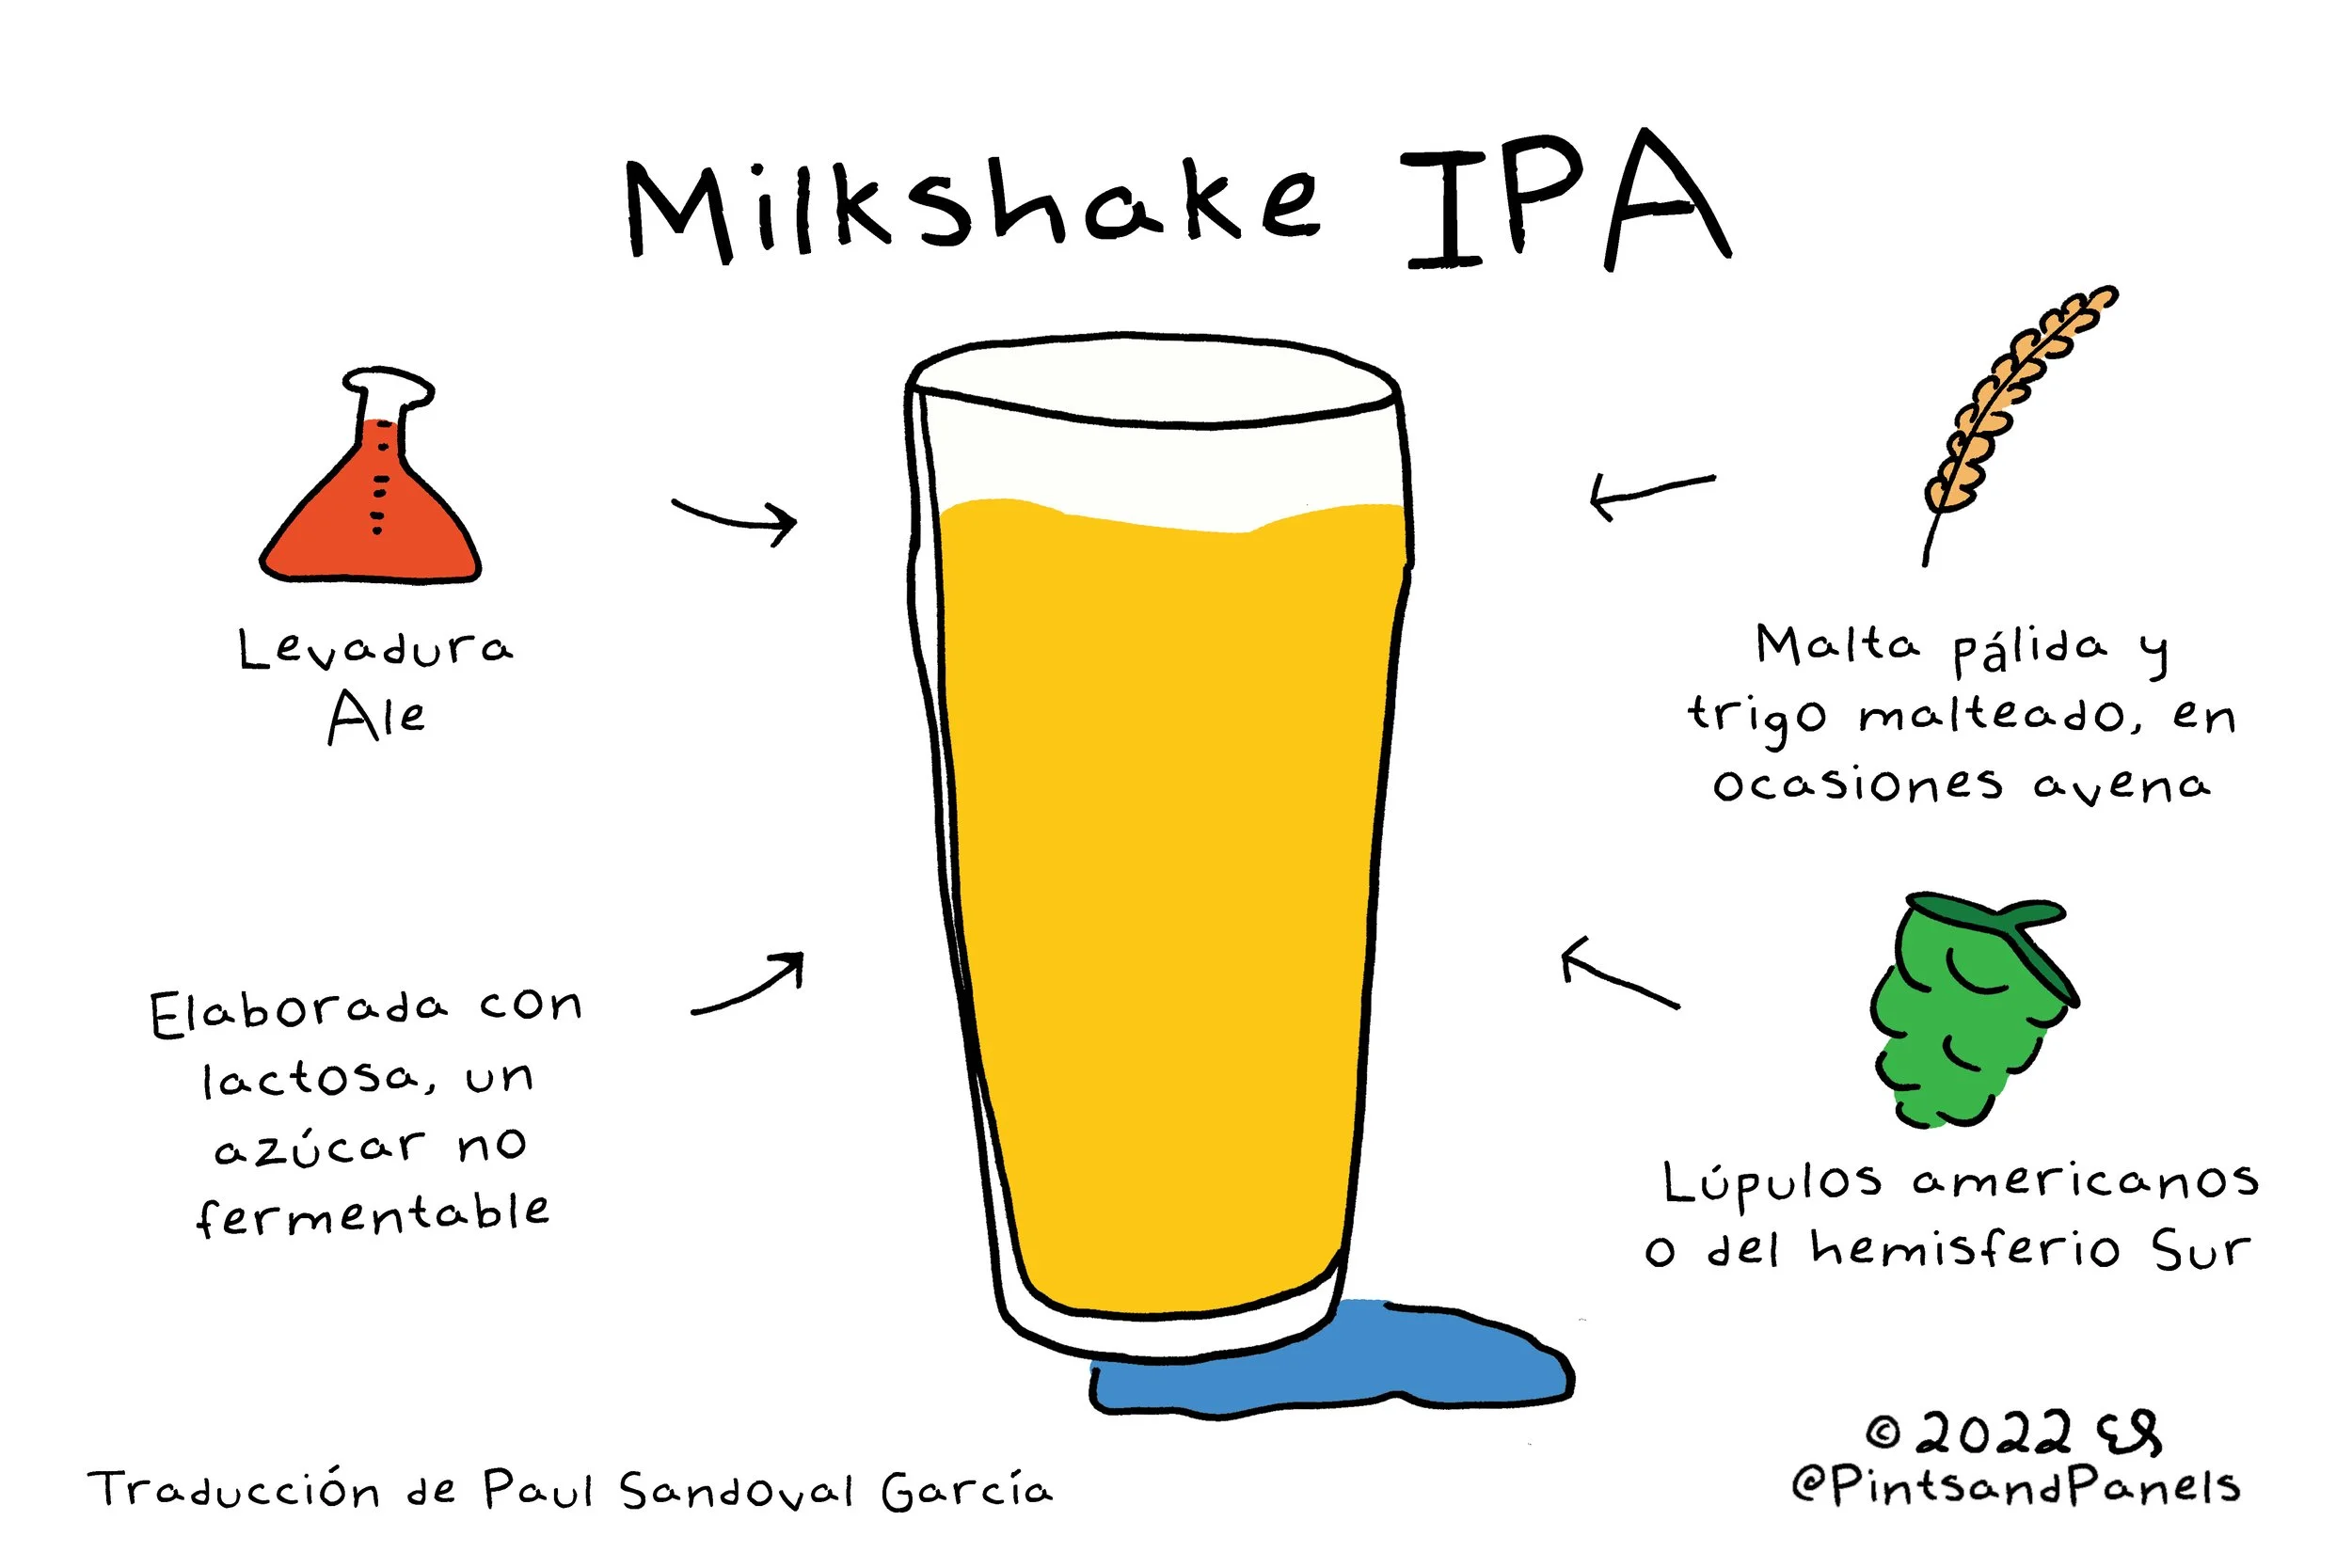 Milkshake IPA
Levadura
Ale
Malta pálida y
trigo malteado, en
ocasiones avena
Elaborada con
lactosa, un
azúcar no
fermentable
Lúpulos americanos
o del hemisferio Sur
Traducción de Paul Sandoval García
© 2022 ES
@PintsandPanels